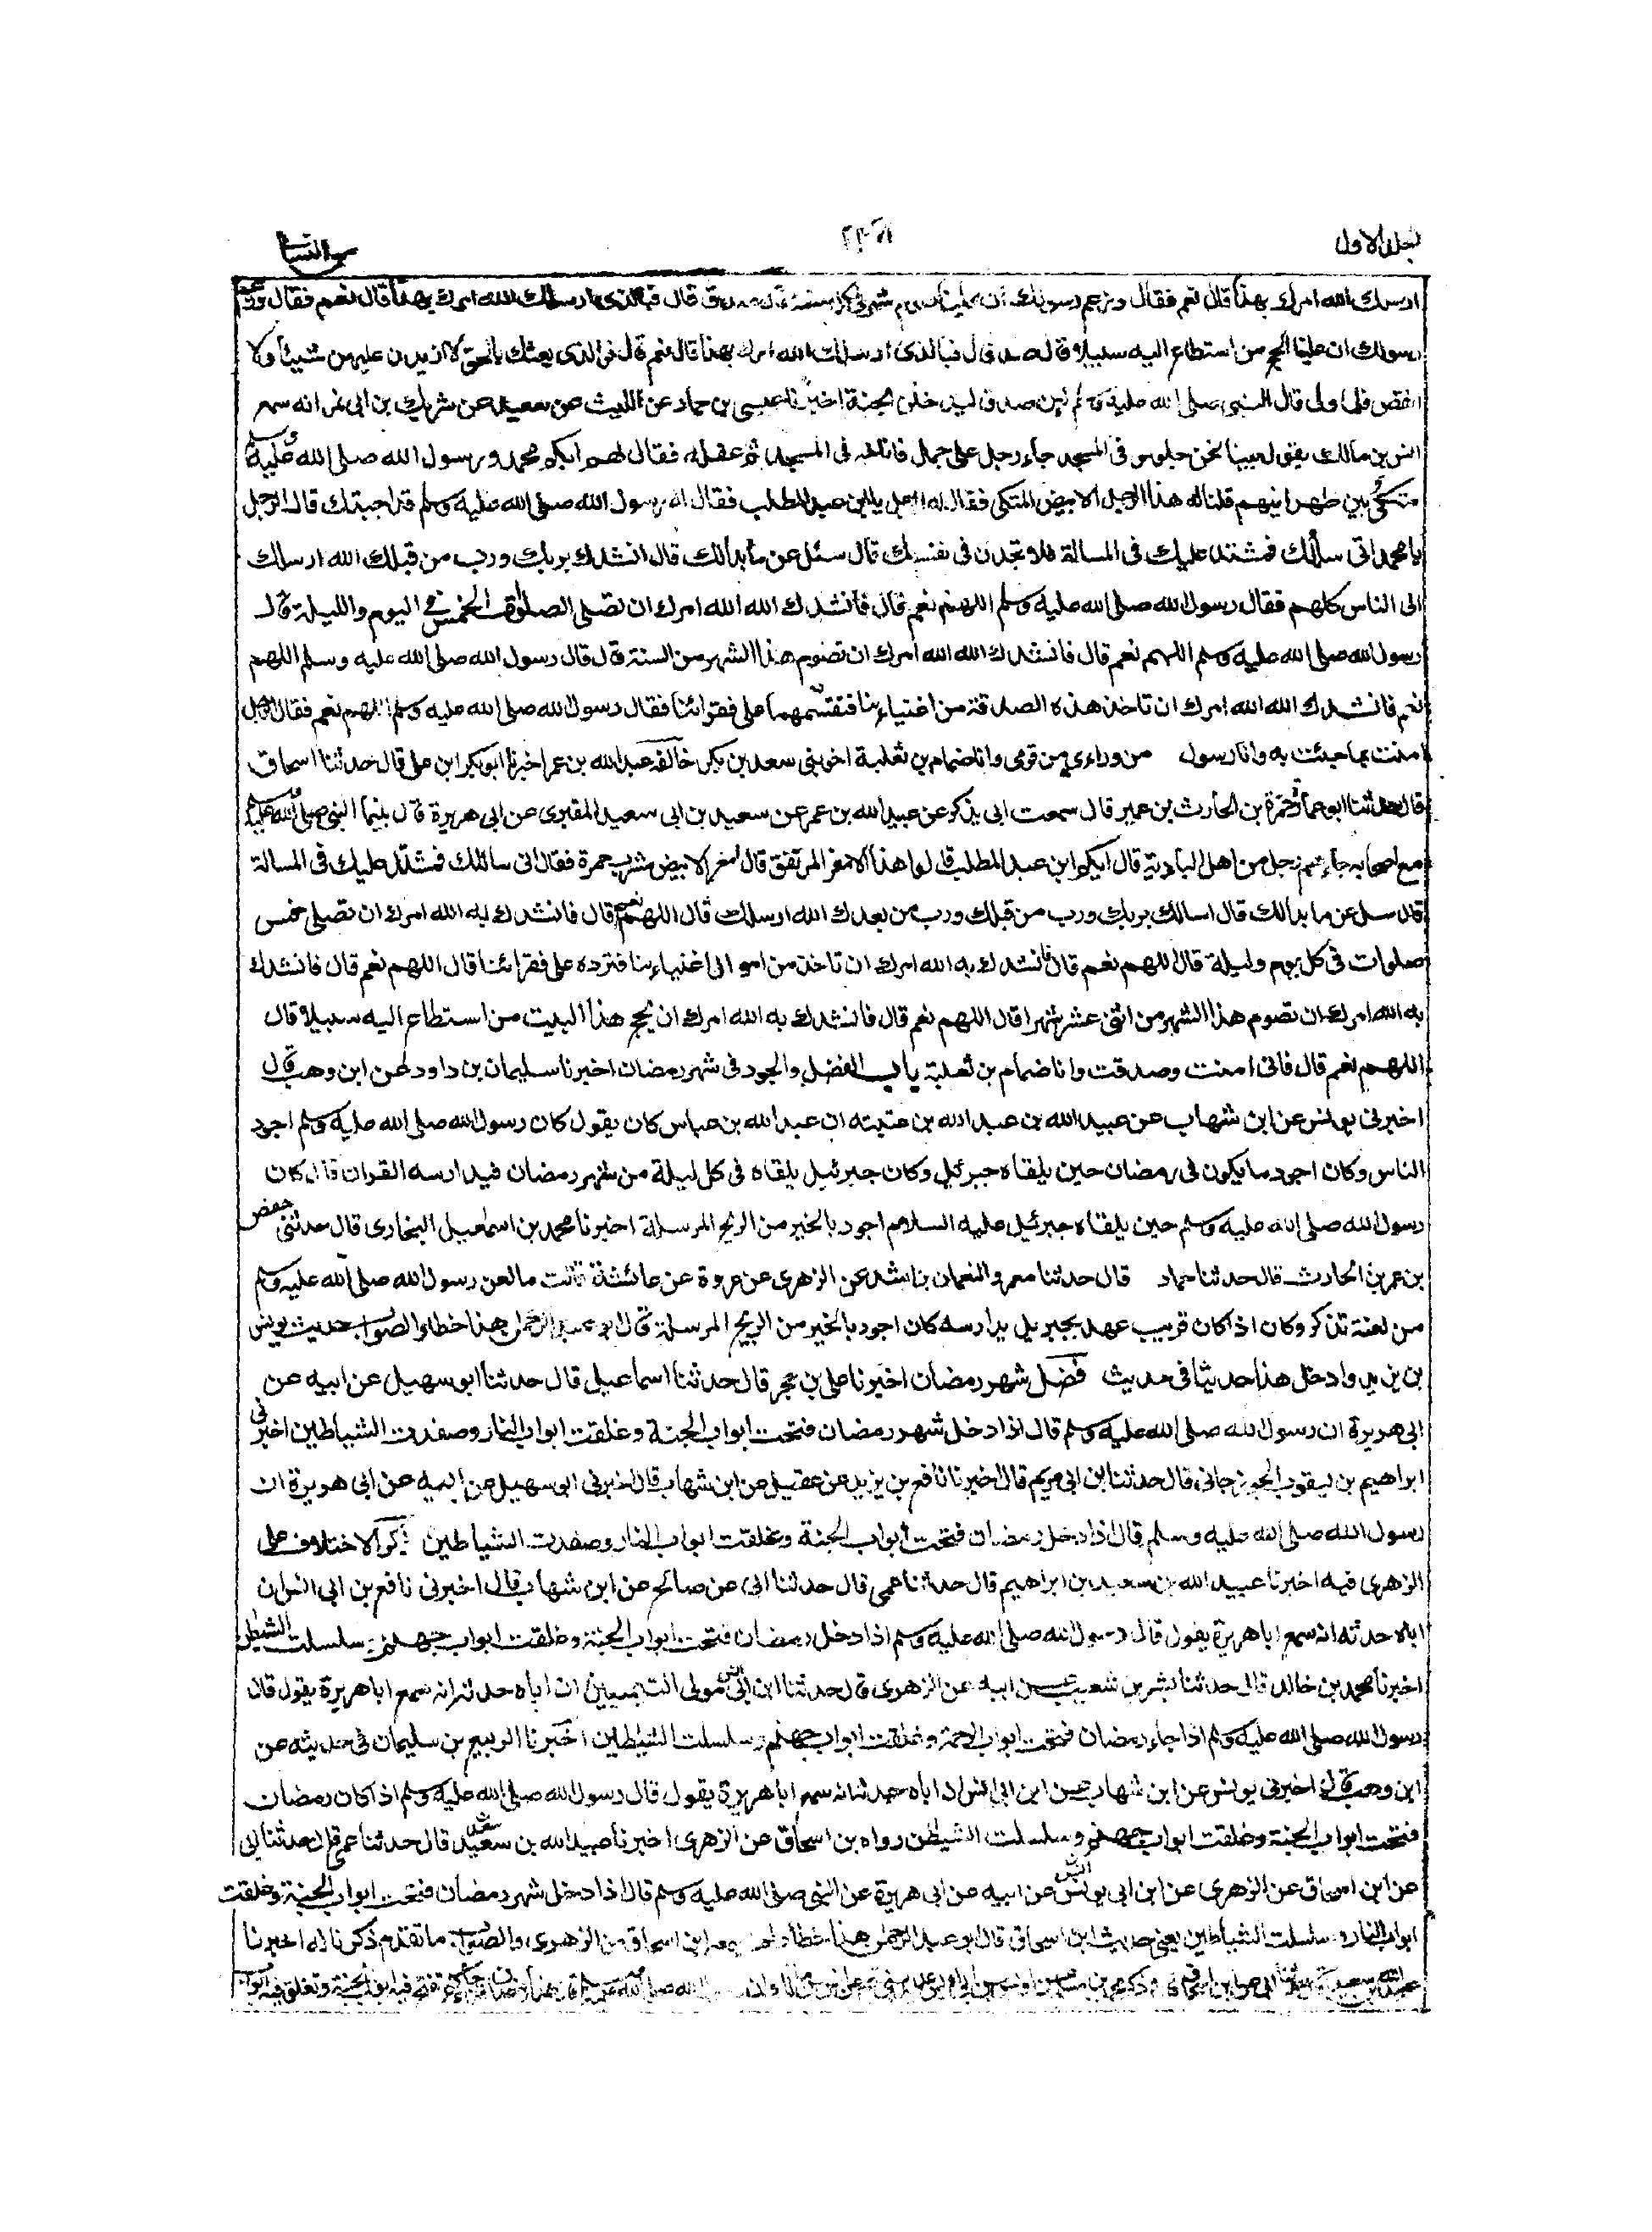 لجلد الاول
النسائي
ارسلك الله امرك بهذا قال نعم فقال وزعم رسولك ان علينا صوم شهر في كل سنة قال صدق قال فبالذي ارسلك الله امرك بهذا قال نعم فقال وزعم
رسولك ان علينا الحج من استطاع اليه سبيلا قال صدق قال فبالذي ارسلك الله امرك بهذا قال نعم قال فوالذي بعثك بالحق لا ازيدن عليهن شيئا ولا
انقص فلما ولى قال النبي صلى الله عليه وسلم لئن صدق ليدخلن الجنة اخبرنا عيسى بن حماد عن الليث عن سعيد عن شريك بن ابي نمر انه سمع
انس بن مالك يقول بينا نحن جلوس في المسجد جاء رجل على جمل فاناخه في المسجد ثم عقله فقال لهم ايكم محمد ورسول الله صلى الله عليه وسلم
متكئ بين ظهرانيهم قلنا له هذا الرجل الابيض المتكئ فقال له الرجل يا ابن عبد المطلب فقال له رسول الله صلى الله عليه وسلم قد اجبتك قال الرجل
يا محمد اني سائلك فمشتد عليك في المسالة فلا تجدن في نفسك قال سئل عن ما بدالك قال انشدك بربك ورب من قبلك الله ارسلك
الى الناس كلهم فقال رسول الله صلى الله عليه وسلم اللهم نعم قال فانشدك الله الله امرك ان تصلى الصلوات الخمس في اليوم والليلة قال
رسول الله صلى الله عليه وسلم اللهم نعم قال فانشدك الله الله امرك ان تصوم هذا الشهر من السنة قال قال رسول الله صلى الله عليه وسلم اللهم
نعم فانشدك الله الله امرك ان تاخذ هذه الصدقة من اغنياءنا فتقسمها على فقرائنا فقال رسول الله صلى الله عليه وسلم اللهم نعم فقال الرجل
امنت بما جئت به وانا رسول من وراءي من قومي وانا ضمام بن ثعلبة اخو بني سعد بن بكر خالفه عبد الله بن عمر اخبرنا ابو بكر ابن علي قال حدثنا اسحاق
قال حدثنا ابو عمارة حمزة بن الحارث بن عمير قال سمعت ابي يذكر عن عبيد الله بن عمر عن سعيد بن ابي سعيد المقبري عن ابي هريرة قال بينما النبي صلى الله عليه وسلم
مع اصحابه جاءهم رجل من اهل البادية قال ايكم ابن عبد المطلب قالوا هذا الامغر المرتفق قال امغر الابيض مشرب حمرة فقال اني سائلك فمشتد عليك في المسالة
قال سل عن ما بدالك قال اسالك بربك ورب من قبلك ورب من بعدك الله ارسلك قال اللهم نعم قال فانشدك به الله امرك ان تصلي خمس
صلوات في كل يوم وليلة قال اللهم نعم قال فانشدك به الله امرك ان تاخذ من اموالي اغنياءنا فترده على فقرائنا قال اللهم نعم قال فانشدك
به الله امرك ان تصوم هذا الشهر من اثنى عشر شهرا قال اللهم نعم قال فانشدك به الله امرك ان يحج هذا البيت من استطاع اليه سبيلا قال
اللهم نعم قال فاني امنت وصدقت وانا ضمام بن ثعلبة باب الفضل والجود في شهر رمضان اخبرنا سليمان بن داود عن ابن وهب قال
اخبرني يونس عن ابن شهاب عن عبيد الله بن عبد الله بن عتبته ان عبد الله بن عباس كان يقول كان رسول الله صلى الله عليه وسلم اجود
الناس وكان اجود ما يكون في رمضان حين يلقاه جبرئيل وكان جبرئيل يلقاه في كل ليلة من شهر رمضان فيدارسه القران قال كان
رسول الله صلى الله عليه وسلم حين يلقاه جبرئيل عليه السلام اجود بالخير من الريح المرسلة اخبرنا محمد بن اسمعيل البخاري قال حدثني حفص
بن عمر بن الحارث قال حدثنا حماد قال حدثنا معمر والنعمان بن راشد عن الزهري عن عروة عن عائشة قالت ما لعن رسول الله صلى الله عليه وسلم
من لعنة تذكر وكان اذا كان قريب عهد بجبريل يدارسه كان اجود بالخير من الريح المرسلة قال ابو عبد الرحمن هذا خطاء والصواب حديث يونس
بن يزيد وادخل هذا حديثا في حديث فضل شهر رمضان اخبرنا علي بن حجر قال حدثنا اسماعيل قال حدثنا ابو سهيل عن ابيه عن
ابي هريرة ان رسول الله صلى الله عليه وسلم قال اذا دخل شهر رمضان فتحت ابواب الجنة وغلقت ابواب النار وصفدت الشياطين اخبرني
ابراهيم بن يعقوب الجوزجاني قال حدثنا ابن ابي مريم قال اخبرنا نافع بن يزيد عن عقيل عن ابن شهاب قال اخبرني ابو سهيل عن ابيه عن ابي هريرة ان
رسول الله صلى الله عليه وسلم قال اذا دخل رمضان فتحت ابواب الجنة وغلقت ابواب النار وصفدت الشياطين ذكر الاختلاف على
الزهري فيه اخبرنا عبيد الله بن سعيد بن ابراهيم قال حدثنا عمي قال حدثنا ابي عن صالح عن ابن شهاب قال اخبرني نافع بن ابي انس ان
اباه حدثه انه سمع ابا هريرة يقول قال رسول الله صلى الله عليه وسلم اذا دخل رمضان فتحت ابواب الجنة وغلقت ابواب جهنم وسلسلت الشيطين
اخبرنا محمد بن خالد قال حدثنا بشر بن شعيب عن ابيه عن الزهري قال حدثنا ابن ابي انس مولى التيميين ان اباه حدثه انه سمع ابا هريرة يقول قال
رسول الله صلى الله عليه وسلم اذا جاء رمضان فتحت ابواب الرحمة وغلقت ابواب جهنم وسلسلت الشيطين اخبرنا الربيع بن سليمان في حديثه عن
ابن وهب قال اخبرني يونس عن ابن شهاب عن ابن ابي انس ان اباه حدثه انه سمع ابا هريرة يقول قال رسول الله صلى الله عليه وسلم اذا كان رمضان
فتحت ابواب الجنة وغلقت ابواب جهنم وسلسلت الشيطن رواه بن اسحاق عن الزهري اخبرنا عبيد الله بن سعيد قال حدثنا عمي قال حدثنا ابي
عن ابن اسحاق عن الزهري عن ابن ابي يونس عن ابيه عن ابي هريرة عن النبي صلى الله عليه وسلم قال اذا دخل شهر رمضان فتحت ابواب الجنة وغلقت
ابواب النار وسلسلت الشياطين يعني حديث ابن اسحاق قال ابو عبد الرحمن هذا خطأ ولم يسمعه ابن اسحاق من الزهري والصواب ما تقدم ذكرنا له اخبرنا